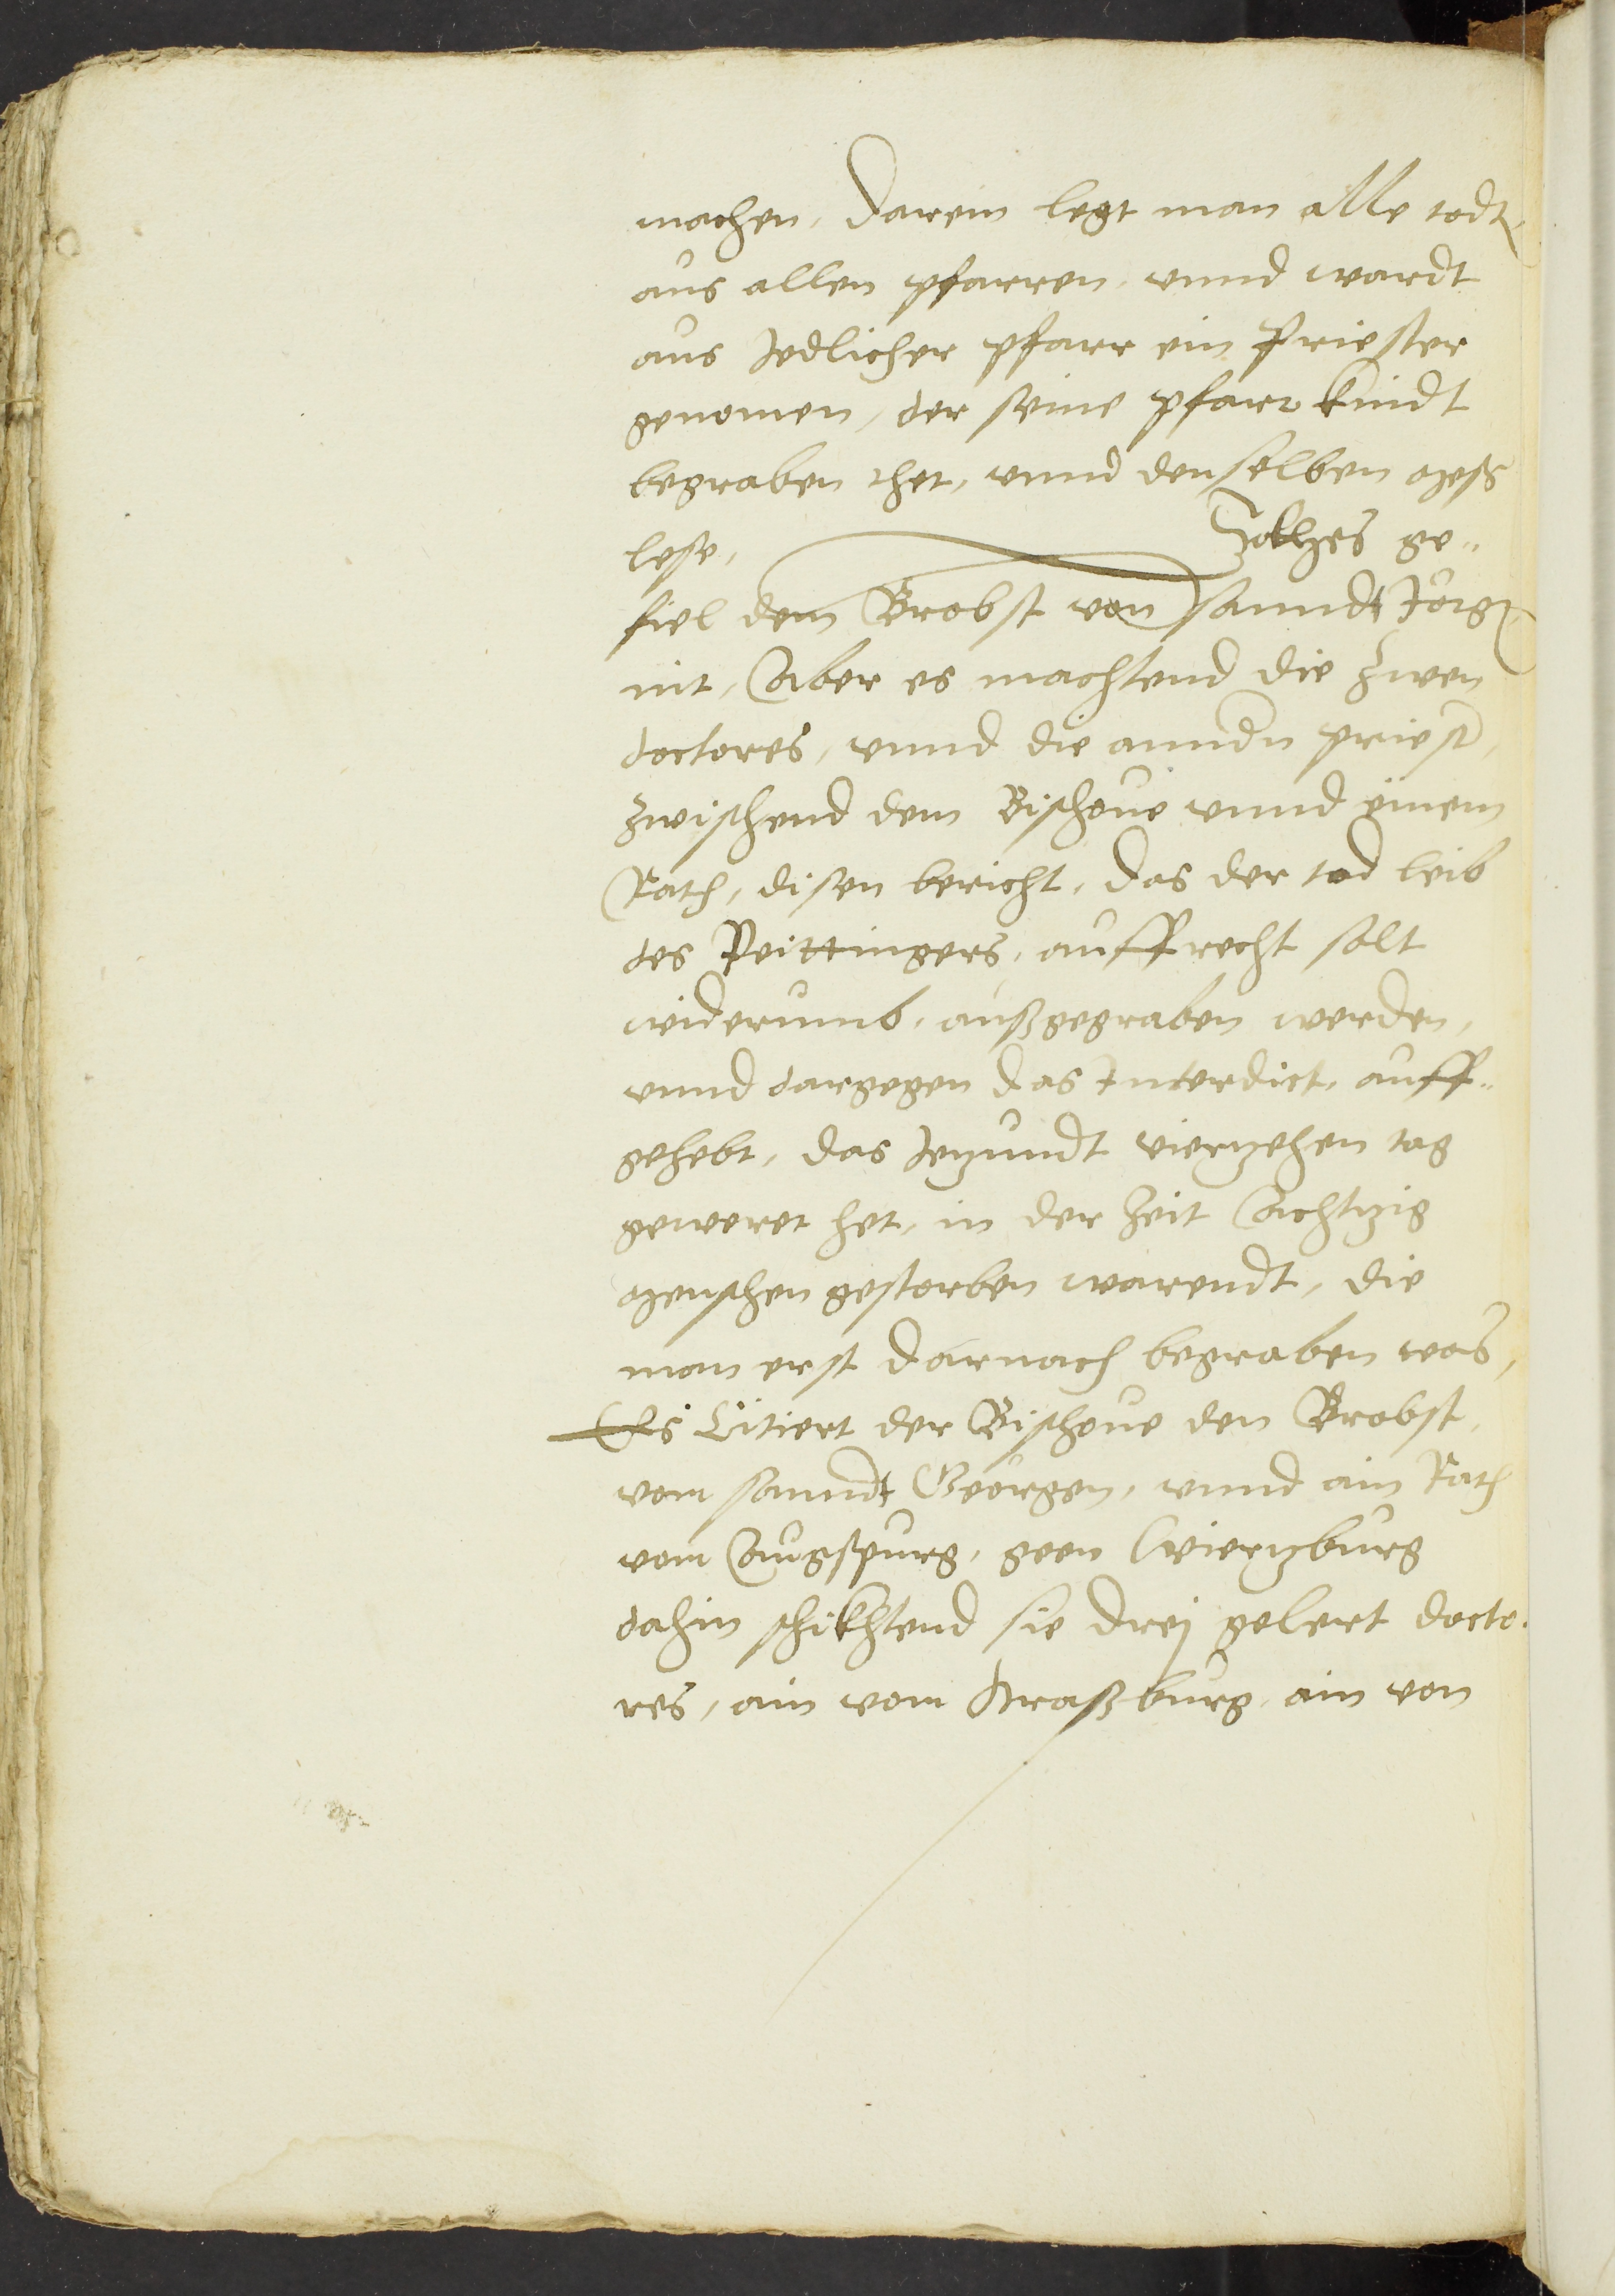 machen, darein legt man alle todt
aus allen pfarren, vnnd wardt
aus Jedlicher pfarr ein Priester
genomen, der seine pfarr kindt
begraben thet, vnnd denselben mess
lese, Solhes ge„
fiel dem Brobst von sanndt Jörgen
nit, Aber es machtend die zwen
doctores, vnnd die anndn priest,
zwischend dem Bischoue vnnd einem
Rath, disen bericht, das der tod leib
des Peittingers, auffrecht solt
widerumb, außgegraben werden,
vnnd dargegen das Interdict, auff„
gehebt, das Jetzundt viertzehen tag
geweret het, in der zeit Achtzig
menschen gestorben warendt, die
man erst darnach begraben was,
Es Citiert der Bischoue den Brobst,
vom sanndt Georgen, vnnd ain Rath
vom Augspurg, geen Wiertzburg
dahin schikhtend sie drej gelert docto„
res, ain vom straßburg, ain von